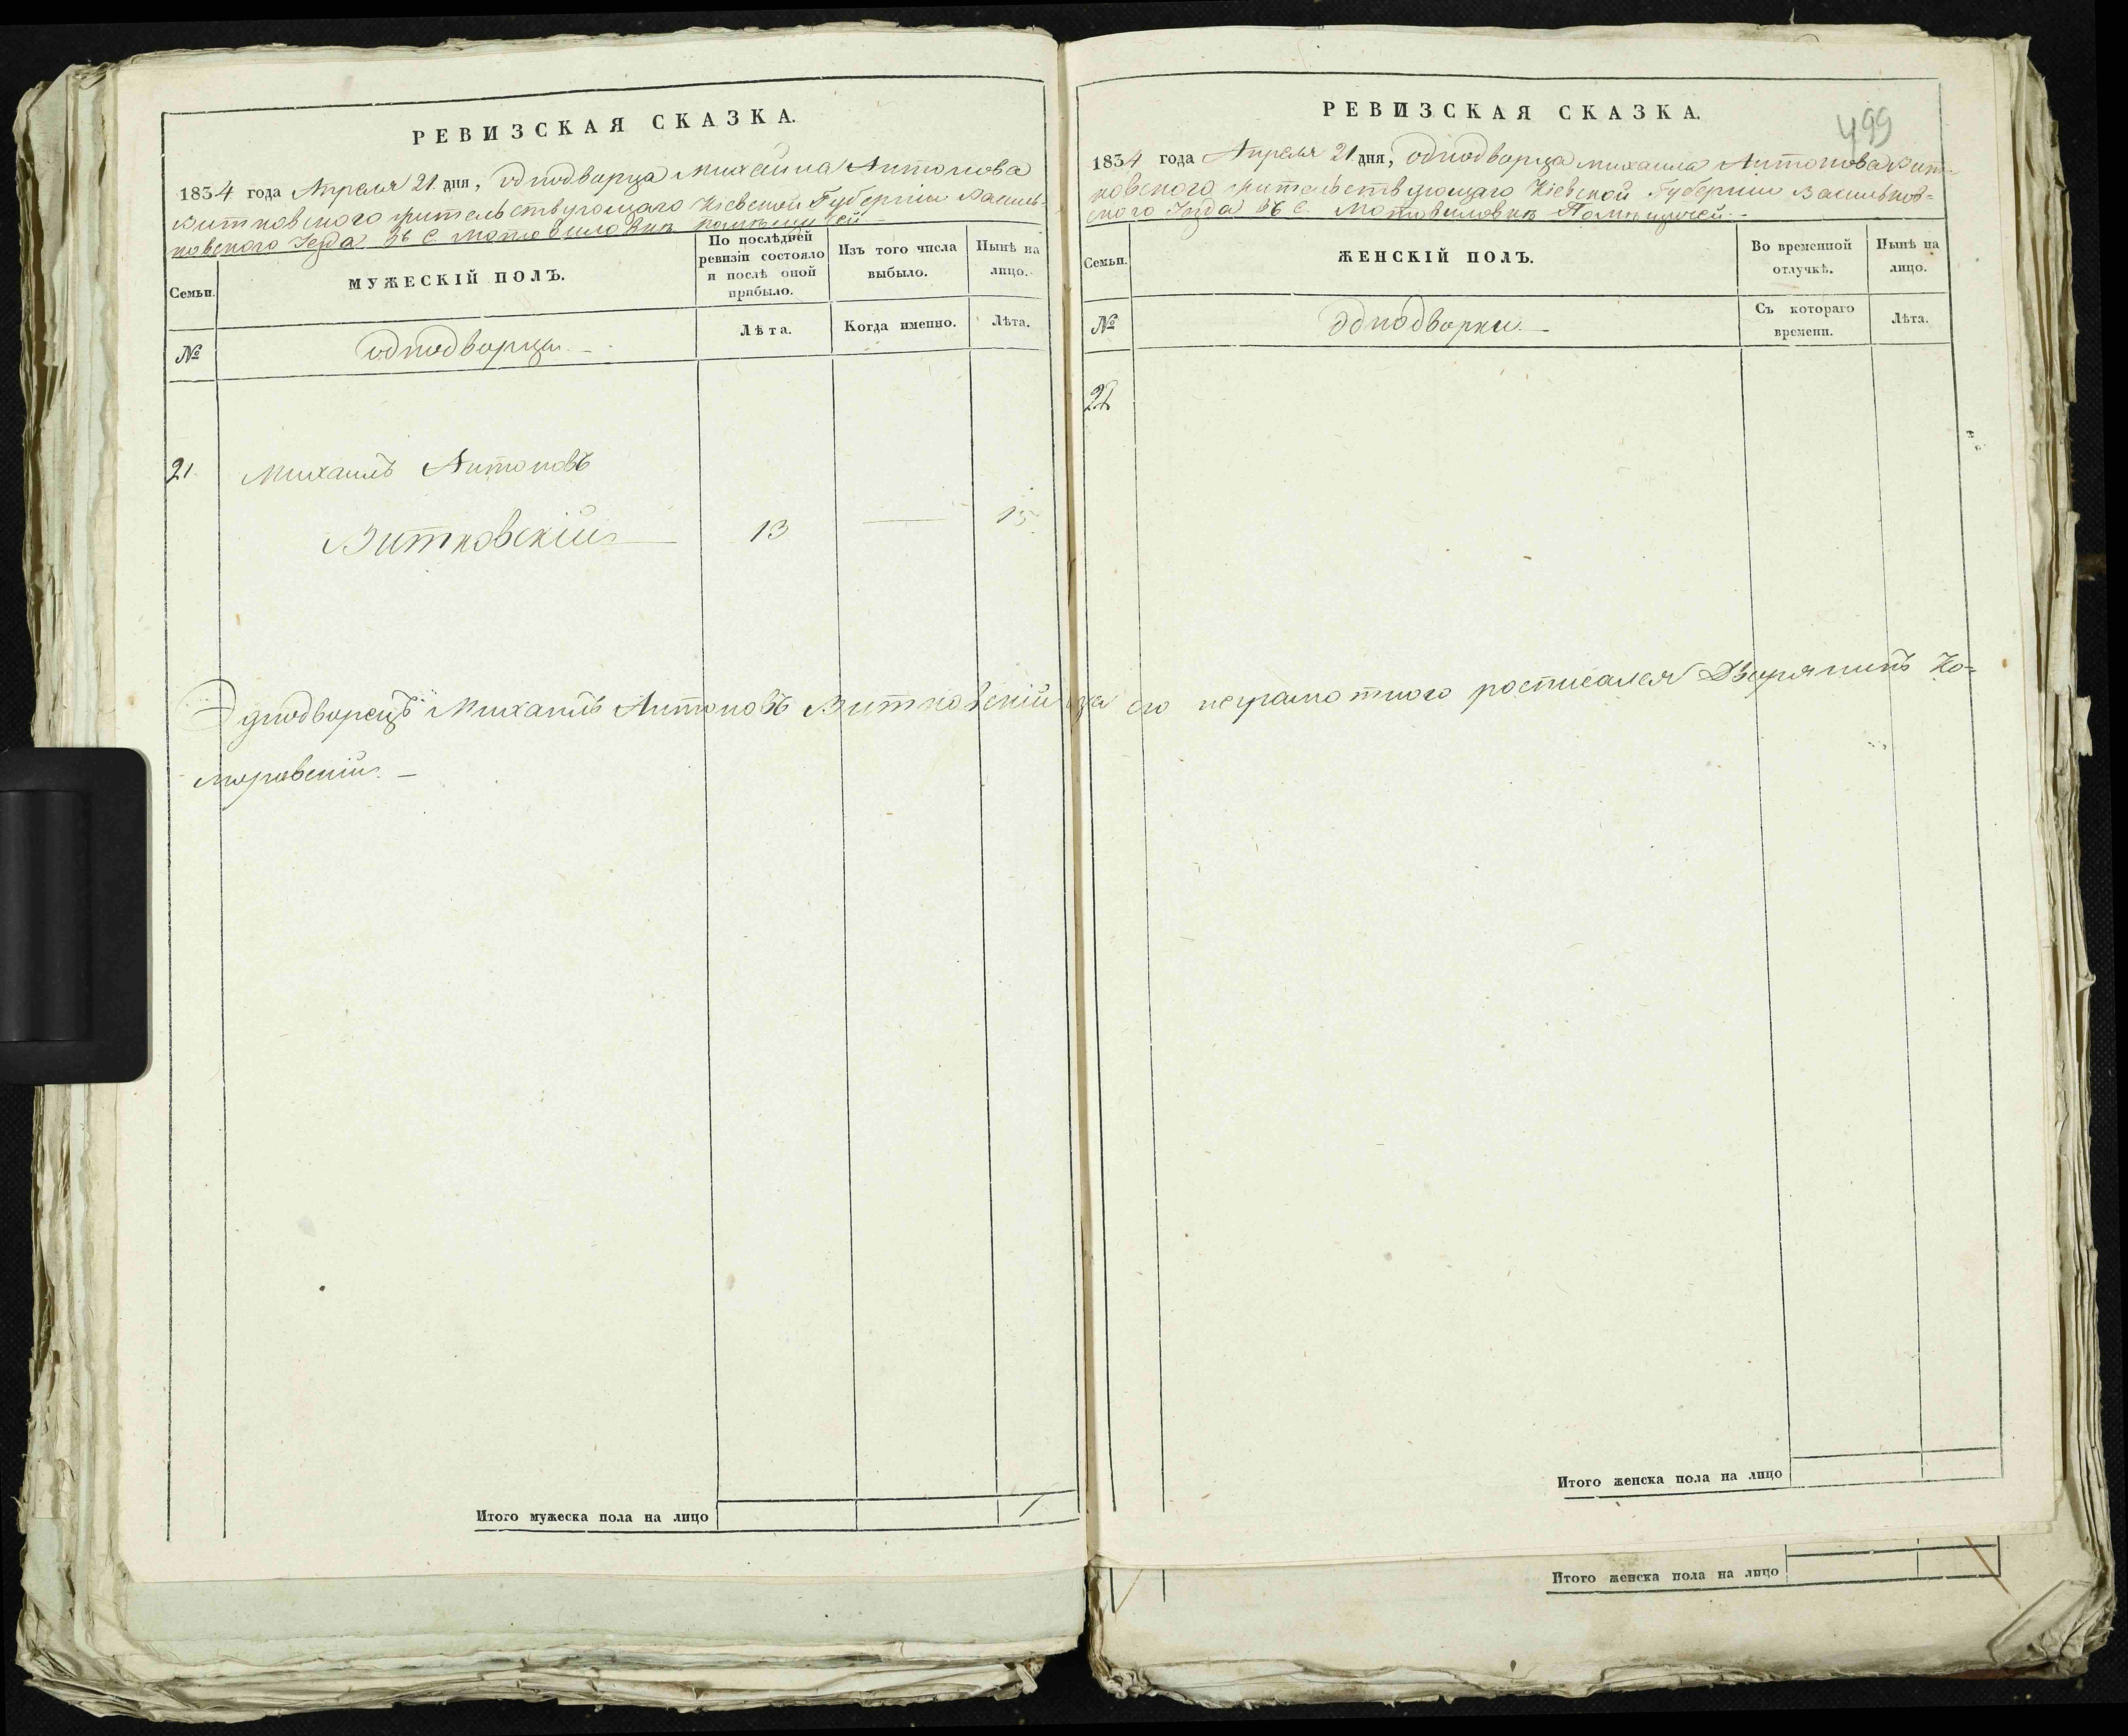 РЕВИЗСКАЯ СКАЗКА.
1834 года Апреля 21 дня, однодворца Михаила Антонова
Витковского жительствующаго Кіевской Губерніи Василь-
ковского Уезда въ С. Мотовиловки помѣщичей
Семьи.
МУЖЕСКІЙ ПОЛЪ.
По послѣдней ревизіи состояло и послѣ оной прибыло.
Изъ того числа выбыло.
Нынѣ на лицо.
№
однодворцы
Лѣта.
Когда именно.
Лѣта.
21. Михаилъ Антоновъ
Витковскій 13 — 15
Однодворецъ Михаилъ Антоновъ Витковскій за его неграмотного росписался Дворянинъ Ко-
моровскій. —
Итого мужеска пола на лицо 1
499
РЕВИЗСКАЯ СКАЗКА.
1834 года Апреля 21 дня, однодворца Михаила Антонова Вит-
ковского жительствующаго Кіевской Губерніи Васильков-
ского Уезда въ С. Мотовиловки Помѣщичей
Семьи.
ЖЕНСКІЙ ПОЛЪ.
Во временной отлучкѣ.
Нынѣ на лицо.
№
Однодворки
Съ котораго времени.
Лѣта.
Итого женска пола на лицо
Итого женска пола на лицо